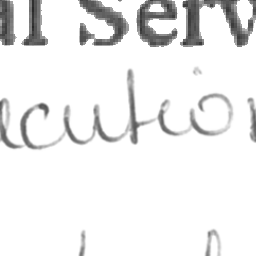 al Serv
ecution